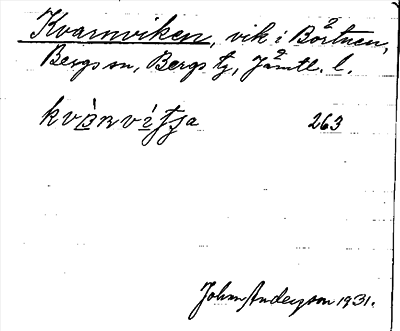 Kvarnviken, vik i Börtnen,
Bergs sn, Bergs tg, Jämtl. l.
263
Johan Anderson 1931.